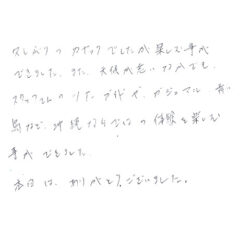 久しぶりのカヤックでしたが楽しむ事が
できました。また、天候が悪い中でも、
スタッフさんの ガイドや、ガジュマル 青い
鳥など、沖縄ならではの体験を楽しむ
事ができました。
本日は、ありがとうございました。